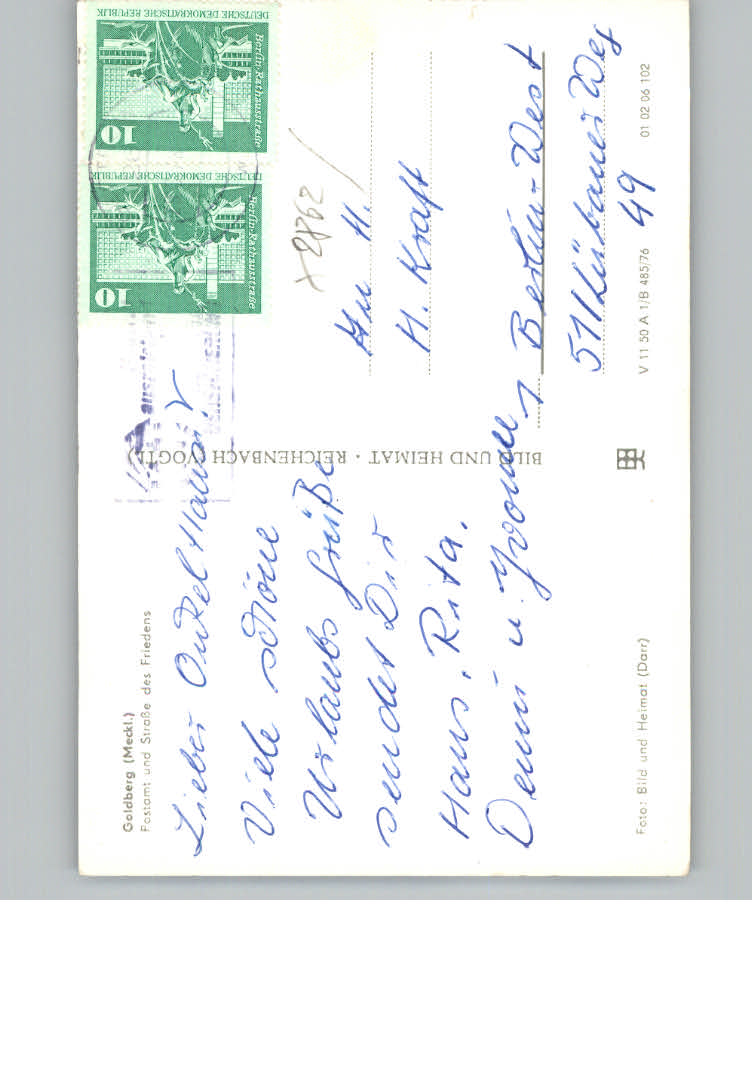 Goldberg (Meckl.)
Postamt und Straße des Friedens
Lieber Onkel
Viele schöne
Urlaubs Grüße
sendet Dir
Hans, Rita,
Denni u. Yvonne
BILD UND HEIMAT · REICHENBACH (VOGTL)
Foto: Bild und Heimat (Darr)
DEUTSCHE DEMOKRATISCHE REPUBLIK
Berlin-Rathausstraße
10
DEUTSCHE DEMOKRATISCHE REPUBLIK
Berlin-Rathausstraße
10
H. Kraft
1 Berlin-West
51 Lübarser Weg
49
V 11 50 A 1/B 485/76 01 02 06 102